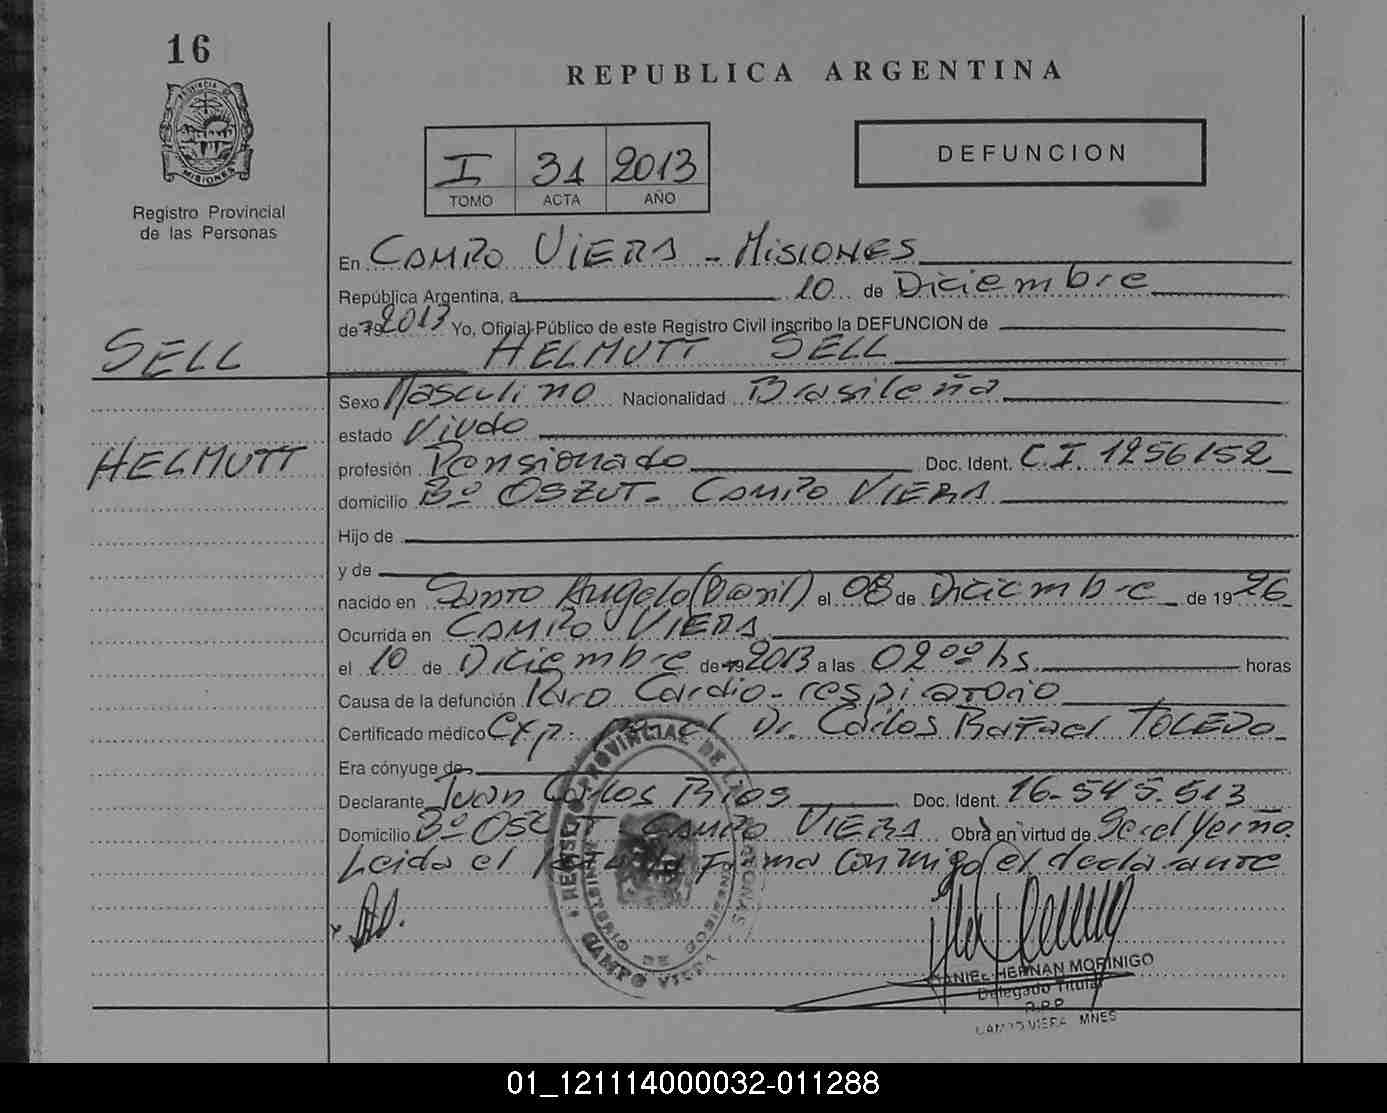 16
PROVINCIA DE
MISIONES
Registro Provincial
de las Personas
REPUBLICA ARGENTINA
I 31 2013
TOMO ACTA AÑO
DEFUNCION
En CAMPO VIERA - MISIONES
República Argentina, a 10 de Diciembre
de 19 2013 Yo, Oficial Público de este Registro Civil inscribo la DEFUNCION de
HELMUTT SELL
SELL
HELMUTT
Sexo Masculino Nacionalidad Brasileña
estado Viudo
profesión Pensionado Doc. Ident. C.I. 1256152
domicilio Bº OSZUT. CAMPO VIERA
Hijo de
y de
nacido en Santo Angelo (Brasil) el 08 de Diciembre de 19 26
Ocurrida en CAMPO VIERA
el 10 de Diciembre de 19 2013 a las 02 ºº hs. horas
Causa de la defunción Paro Cardio-respiratorio
Certificado médico Exp. Dr. Carlos Rafael TOLEDO
Era cónyuge de
Declarante Juan Carlos Rios Doc. Ident. 16-545.513
Domicilio Bº CAMPO VIERA Obra en virtud de Ser el Yerno.
Leida el firma conmigo el declarante
REGISTRO PROVINCIAL DE LAS PERSONAS
MINISTERIO DE GOBIERNO
CAMPO VIERA
DANIEL HERNAN MORINIGO
Delegado Titular
R.P.P.
CAMPO VIERA MNES
01_121114000032-011288